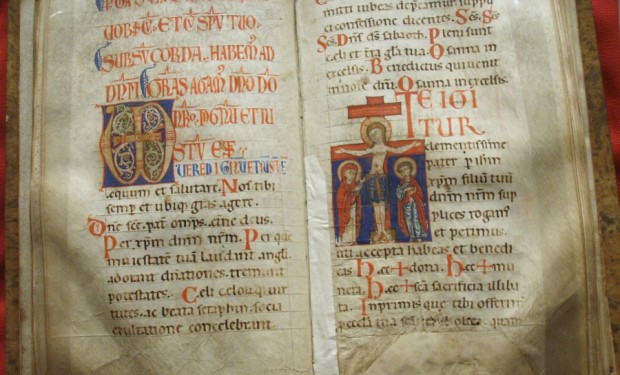 UOBIC. ET CŪ SPŪ TUO.
SURSŪ CORDA. HABEM AD
DN̄M. GRAS AGAM DN̄O DO
NRO. DIGNŪ ET IU
STŪ EST
VERE DIGNV ET IUSTV
aequum et salutare. Nos tibi
semp et ubiq; gras agere.
Dn̄e sc̄e. pat̄ omps. et̄ne deus.
Per xp̄m dnm nrm. Per que
maiestatē tuā laudant angli.
adorant dn̄ationes. tremunt
potestates. Celi celorūq; uir
tutes. ac beata seraphin. socia
exultatione concelebrant.
mitti iubeas dep̄camur suppli
ci confessione dicentes. Sc̄s. Sc̄s
Sc̄s. Dn̄s ds̄ sabaoth. Pleni sunt
celi et tr̄a gl̄a tua. Osanna in
excelsis. Benedictus qui uenit
in noīe dn̄i. Osanna in excelsis.
TE IGI
TUR
clementissime
pater. p̄ ihm
xp̄m filiū tuū
dnm nrm sup
plices rogam̄
et petimus
uti accepta habeas et benedi
cas. Hec + dona. Hec + mu
nera. Hec + scā sacrificia illiba
ta. Inprimis que tibi offerim̄